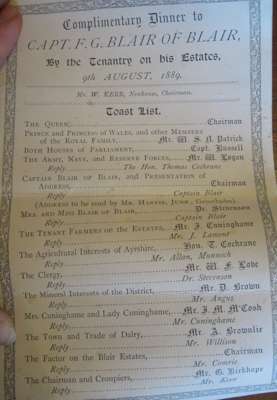 Complimentary Dinner to
CAPT. F. G. BLAIR OF BLAIR,
By the Tenantry on his Estates,
9th AUGUST, 1889.
Mr. W. KERR, Newhouse, Chairman.
Toast List.
THE QUEEN, Chairman
PRINCE AND PRINCESS OF WALES, AND OTHER MEMBERS
OF THE ROYAL FAMILY, Mr. W. S. N. Patrick
BOTH HOUSES OF PARLIAMENT, Capt. Russell
THE ARMY, NAVY, AND RESERVE FORCES, Mr. W. Logan
Reply The Hon. Thomas Cochrane
CAPTAIN BLAIR OF BLAIR, AND PRESENTATION OF
ADDRESS, Chairman
Reply Captain Blair
(ADDRESS TO BE READ BY MR. JUNR.,
MRS. AND MISS BLAIR OF BLAIR, Dr. Stevenson
Reply Captain Blair
THE TENANT FARMERS ON THE ESTATES, Mr. J. Cuninghame
Reply Mr. J. Lamont
The Agricultural Interests of Ayrshire, Hon. T. Cochrane
Reply Mr. Allan, Munnoch
The Clergy, Mr. W. F. Love
Reply Dr. Stevenson
The Mineral Interests of the District, Mr. D. Brown
Reply Mr. Angus
Mrs. Cuninghame and Lady Cuninghame, Mr. J. M. M'Cosh
Reply Mr. Cuninghame
The Town and Trade of Dalry, Mr. A. Brownlie
Reply Mr. William
The Factor on the Blair Estates, Chairman
Reply Mr. Comrie
The Chairman and Croupiers, Mr. G. Birkhape
Reply Mr. Kerr